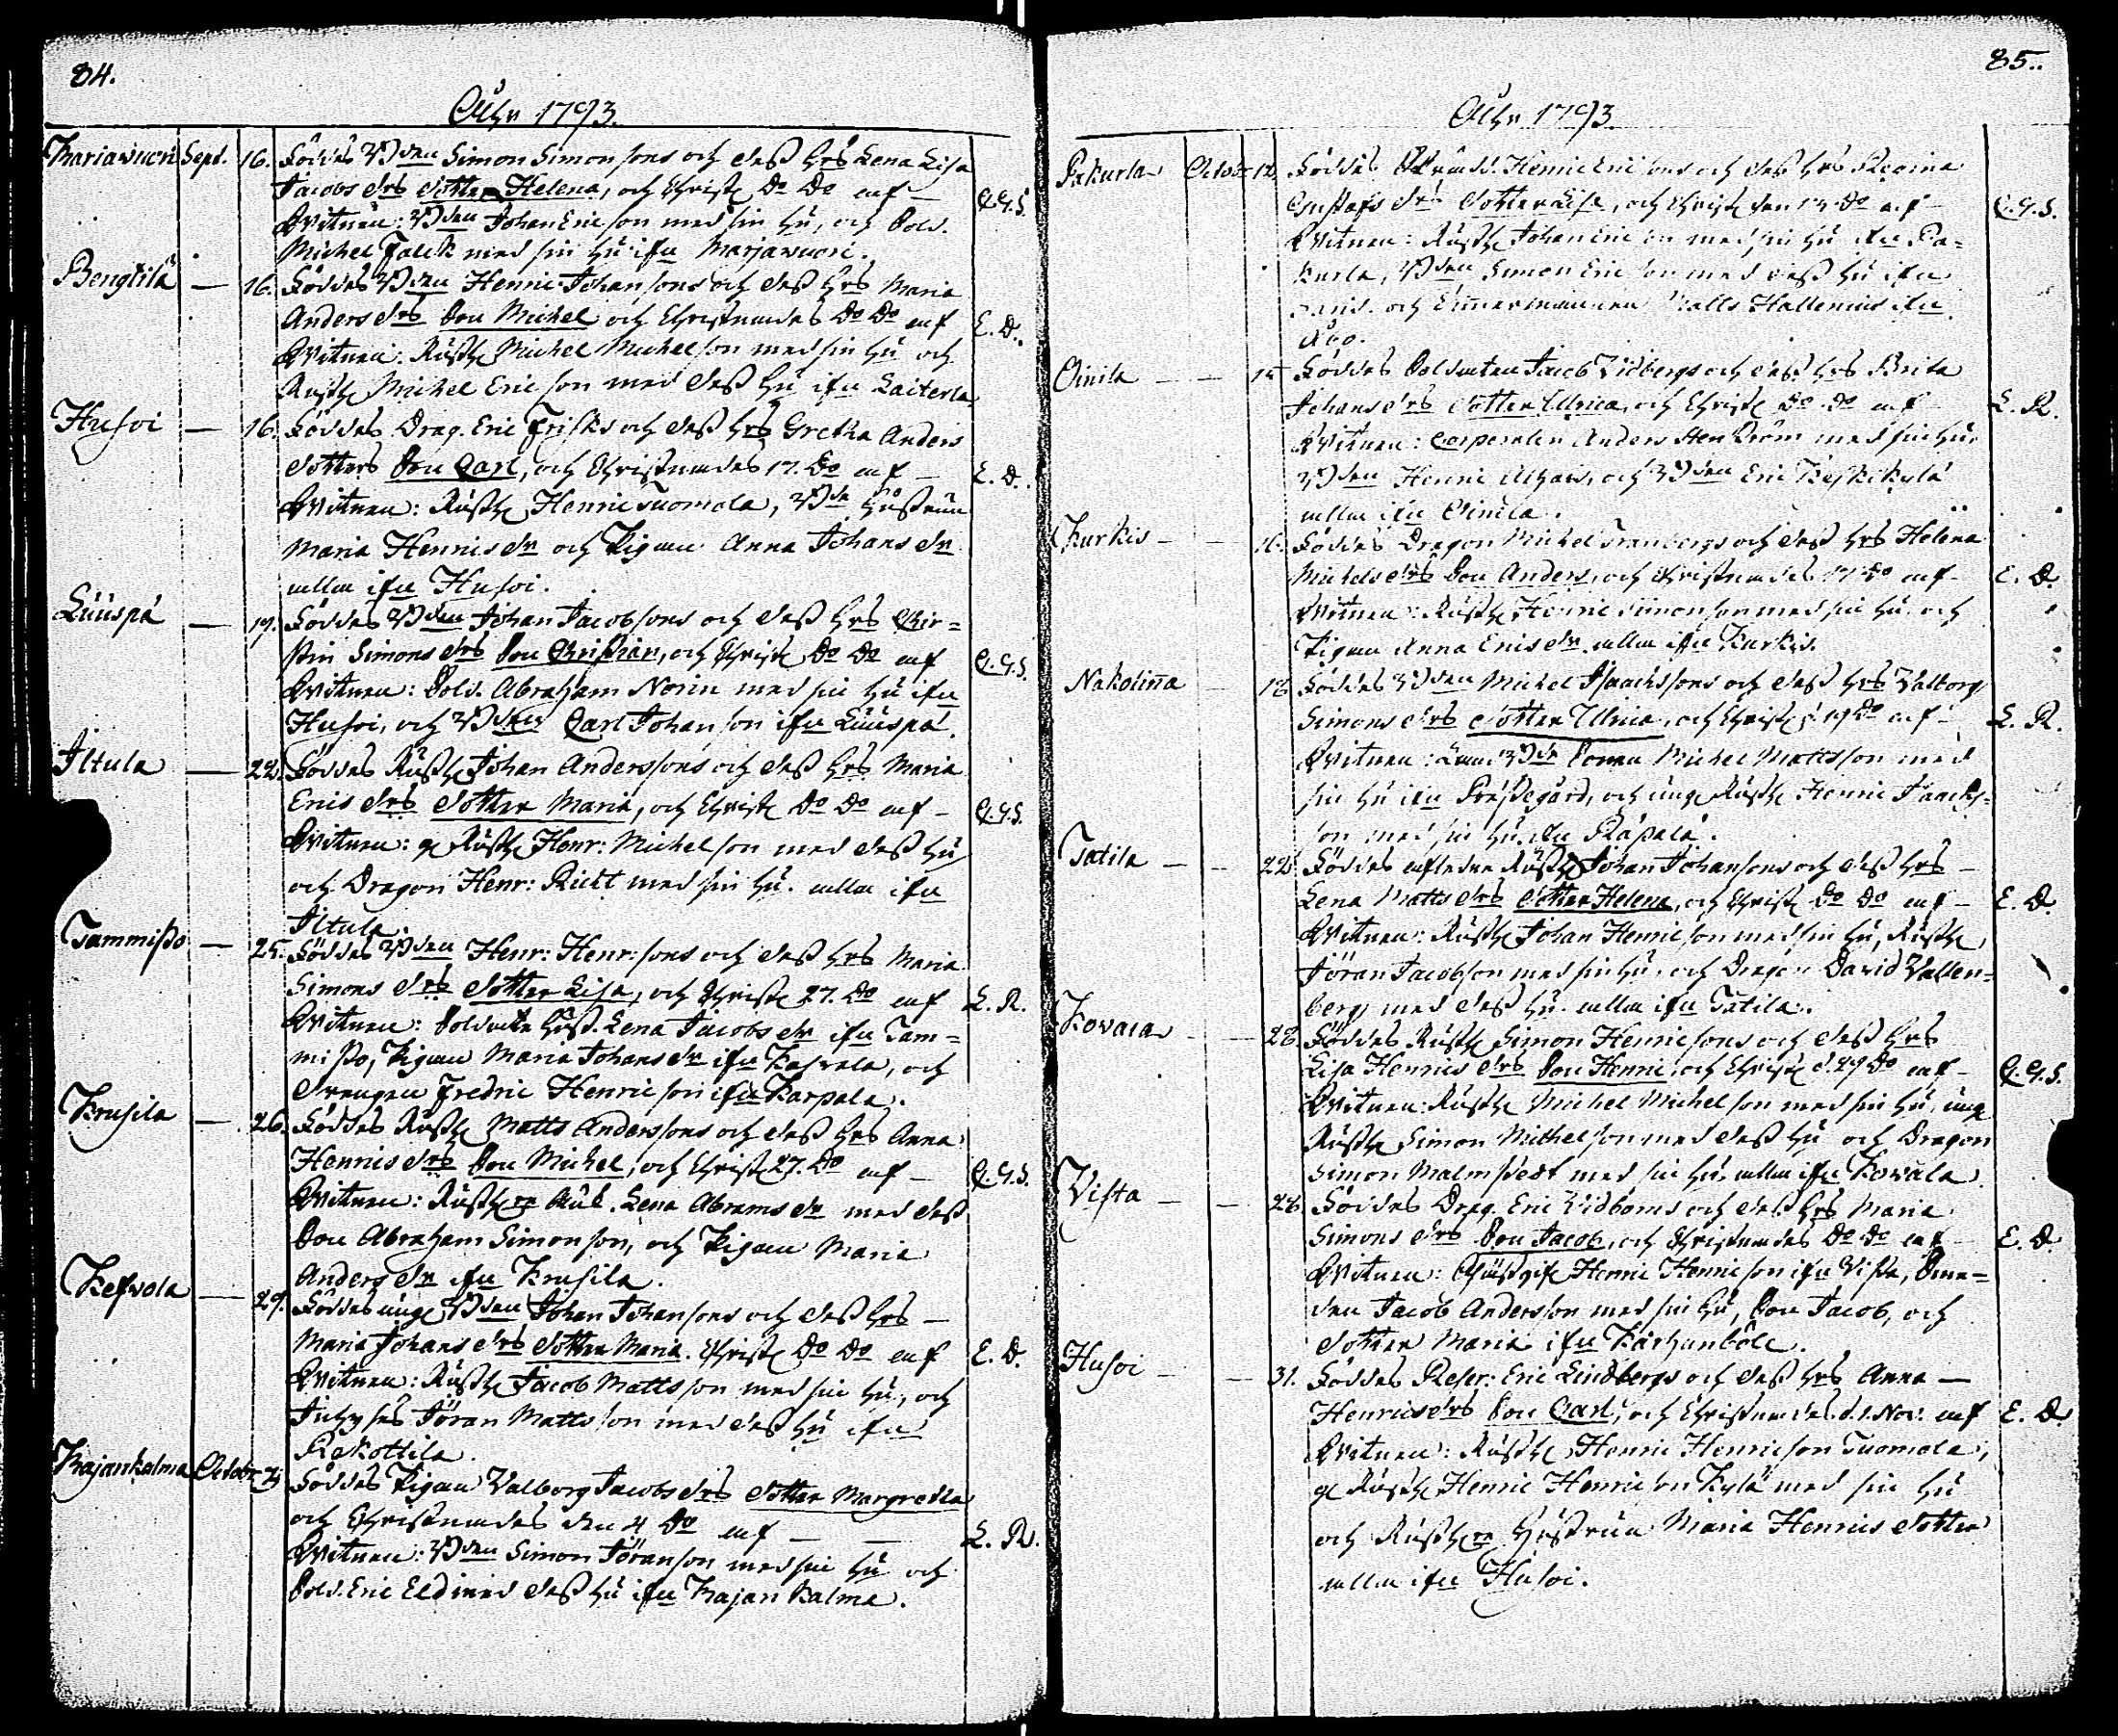 84.
Åhr 1793.
Mariawuori Sept. 16. Föddes Bden Simon Simonsons och dess hrs Lena Lisa
Jacobs drs dotter Helena, och Christ. Do Do af — C.G.S.
Witnen: Bden Johan Ericson med sin hu, och Sold.
Michel Falck med sin hu ifrn Marjawuori.
Bengtilä — 16. Föddes Bden Henric Johansons och dess hrs Maria
Anders drs Son Michel och Christnades Do Do af E.D.
Witnen: Rusth. Michel Michelson med sin hu och
Rusth. Michel Ericson med dess hu ifrn Laiterla.
Husoi — 16. Föddes Drag. Eric Frisks och dess hrs Gretha Anders
dotters Son Carl, och Christnades 17. Do af — E.D.
Witnen: Rusth. Henric Tuomola, Bde hustrun
Maria Henrics dr och Pigan Anna Johans dr
alla ifrn Husoi.
Luuspä — 19. Föddes Bden Johan Jacobsons och dess hrs Chir=
stin Simons drs Son Christian, och Christ. Do Do af C.G.S.
Witnen: Sold. Abraham Norin med sin hu ifrn
Husoi, och Bden Carl Johanson ifrn Luuspä.
Iltula — 22. Föddes Rusth. Johan Anderssons och dess hrs Maria
Erics drs dotter Maria, och Christ. Do Do af — C.G.S.
Witnen: g. Rusth. Henr: Michelson med dess hu
och Dragon Henr: Rickt med sin hu. alla ifrn
Iltula.
Tammisto — 25. Föddes Bden Henr: Henr:sons och dess hrs Maria
Simons drs dotter Lisa, och Christ. 27. Do af L.R.
Witnen: Soldate hust. Lena Jacobs dr ifrn Tam=
misto, Pigan Maria Johans dr ifrn Kasvala, och
Drengen Fredric Henricson ifrn Karpala.
Krusila — 26. Föddes Rusth. Matts Anderssons och dess hrs Anna
Henrics drs Son Michel, och Christ. 27. Do af — C.G.S.
Witnen: Rusth. Lena Abrams dr med dess
Son Abraham Simonson, och Pigan Maria
Anders dr ifrn Krusila.
Kefvola — 29. Föddes unge Bden Johan Johansons och dess hrs —
Maria Johans drs dotter Maria. Christ. Do Do af E.D.
Witnen: Rusth. Jacob Mattsson med sin hu, och
Inhyses Jöran Mattsson med dess hu ifrn
Rekottila.
Kajankalma Octobr 3. Föddes Pigan Valborg Jacobs drs dotter Margretha
och Christnades den 4 Do af — — L.R.
Witnen: Bden Simon Jöranson med sin hu och
Sold. Eric Eld med dess hu ifrn Kajankalma.
85.
Åhr 1793
Pakurla Octobr 12. Föddes Henric Ericsons och dess hrs Regina
Gustafs drs dotter Lisa, och Christ. den 13. Do af — C.G.S.
Witnen: Rusth. Johan Ericson med sin hu ifrn Pa=
kurla, Bden Simon Ericson med dess hu ifrn
och Timmermannen Matts Hallenius ifrn
Åbo.
Oinila — — 15 Föddes Soldaten Jacob Vidbergs och dess hrs Brita
Johans drs dotter Ulrica, och Christ. Do Do af — L.R.
Witnen: Corporalen Anders Stenström med sin hu.
Bden Henric och Bden Eric Keskikylä
alla ifrn Oinila.
Kurkis — — 16. Föddes Dragon Michel Tranbergs och dess hrs Helena
Michels drs Son Anders, och Christnades 17 Do af — E.D.
Witnen: Rusth. Henric Simonson med sin hu. och
Pigan Anna Erics dr alla ifrn Kurkis.
Nakolinna — 18 Föddes Bden Michel Isaacssons och dess hrs Valborg
Simons drs dotter Ulrica, och Christ. d. 19 Do af — L.R.
Witnen: Bde Sonen Michel Mattsson med
sin hu ifrn Prästegård, och unge Rusth. Henric Isaacs=
son med sin hu. ifrn Räpälä.
Tatila — — 22 Föddes afledne Rusth. Johan Johansons och dess hrs —
Lena Matts drs dotter Helena, och Christ. Do Do af — E.D.
Witnen: Rusth. Johan Henricson med sin hu, Rusth.
Jöran Jacobson med sin hu. och Dragon David Vallen=
berg med dess hu. alla ifrn Tatila.
Kovala — — 28. Föddes Rusth. Simon Henricsons och dess hrs
Lisa Henrics drs Son Henric, och Christ. d. 29 Do af — C.G.S.
Witnen: Rusth. Michel Michelson med sin hu, unge
Rusth. Simon Michelson med dess hu och Dragon
Simon Malmstedt med sin hu, alla ifrn Kovala
Vista — — 28. Föddes Drag. Eric Vidboms och dess hrs Maria
Simons drs Son Jacob, och Christnades Do Do af — E.D.
Witnen: Henric Henricson ifrn Vista, Sme=
den Jacob Andersson med sin hu, Son Jacob, och
dotter Maria ifrn Karhunböle.
Husoi — — 31. Föddes Reser: Eric Lindbergs och dess hrs Anna —
Henrics drs Son Carl, och Christnades d. 1. Nov. af E.D.
Witnen: Rusth. Henric Henricson Tuomola,
g. Rusth. Henric Henricson Kylä med sin hu
och Rusth. hustrun Maria Henrics dotter
alla ifrn Husoi.